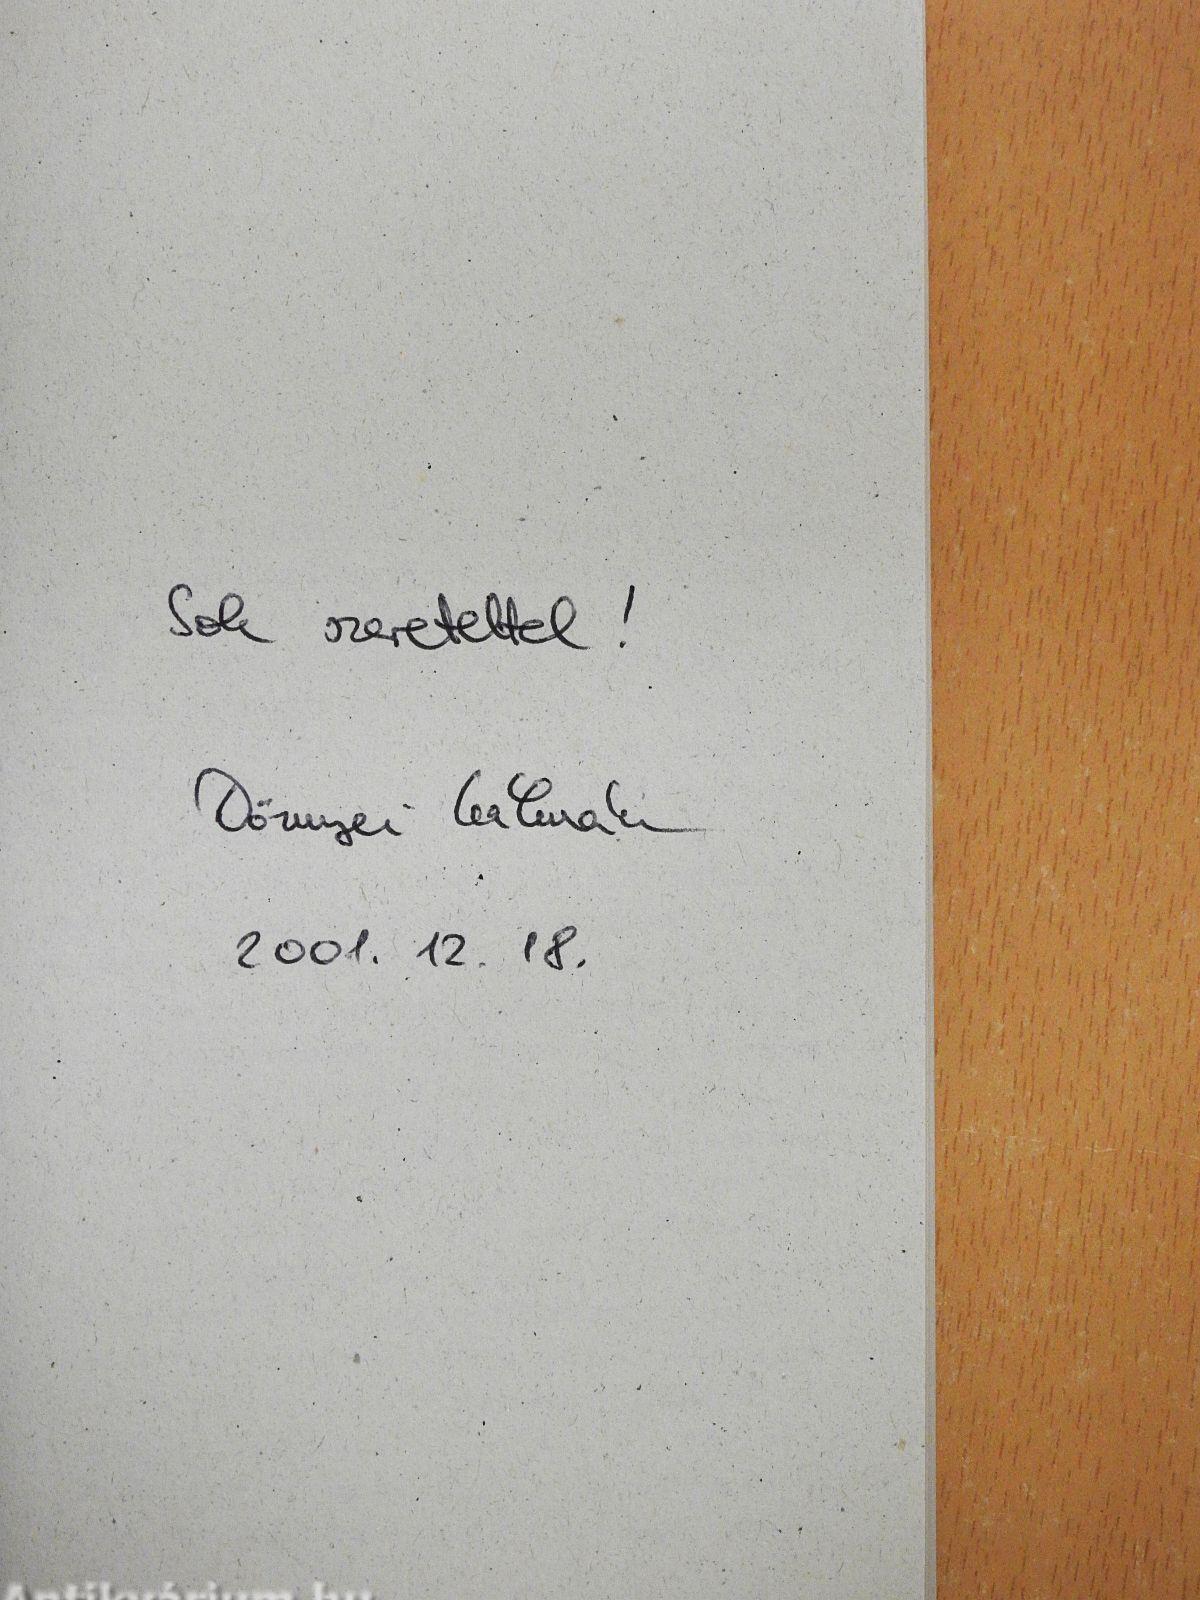 Sok szeretettel!
Dömyei Kálmán
2001. 12. 18.
Antikvárium.hu